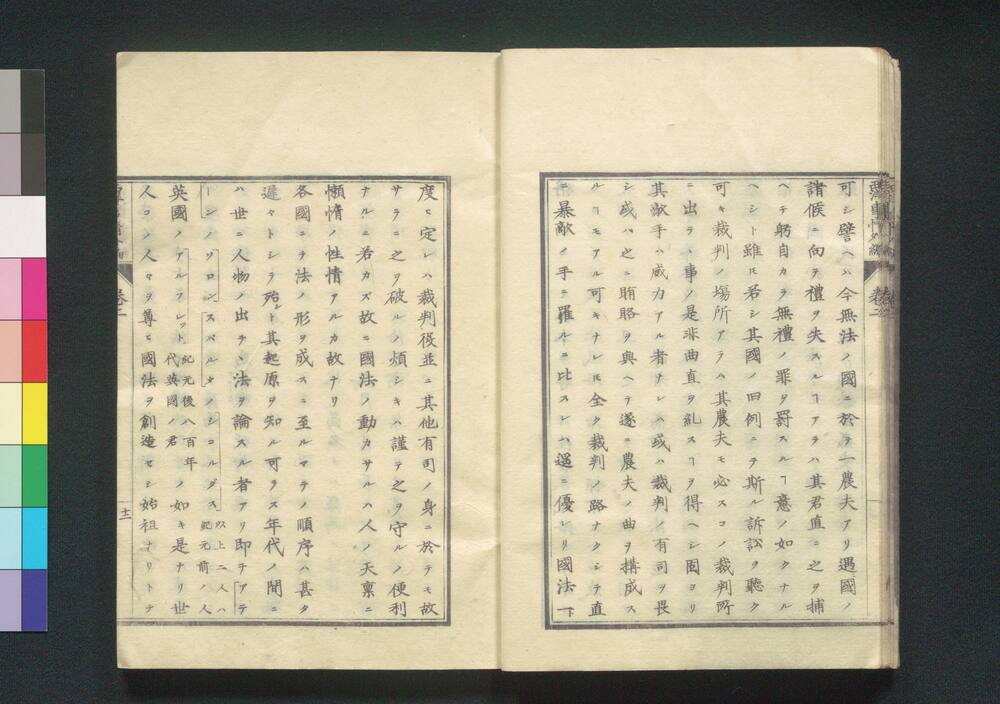 可シ譬ヘハ今無法ノ國ニ於テ一農夫アリ過國ノ
諸候ニ向テ禮ヲ失スルヿアラハ其君直ニ之ヲ捕
ヘテ躬自カラ無禮ノ罪ヲ罸スルヿ意ノ如クナル
ヘシト雖𪜈若シ其國ノ旧例ニテ斯ル訴訟ヲ聽ク
可キ裁判ノ塲所アラハ其農夫モ必スコノ裁判所
ニ出テ、事ノ是非曲直ヲ糺スヿヲ得ヘシ固ヨリ
其敵手ハ威力アル者ナレハ或ハ裁判ノ有司ヲ畏
シ或ハ之ニ賄賂ヲ與ヘテ遂ニ農夫ノ曲ヲ搆成ス
ルヿモアル可キナレ𪜈全ク裁判ノ路ナクシテ直
ニ暴敵ノ手ニ罹ルニ比スレハ遥ニ優レリ國法一
度ヒ定レハ裁判役並ニ其他有司ノ身ニ於テモ故
サラニ之ヲ破ルノ煩シキハ謹テ之ヲ守ルノ便利
ナルニ若カズ故ニ國法ノ動カサルハ人ノ天禀ニ
懶惰ノ性情アルカ故ナリ
各國ニテ法ノ形ヲ成スニ至ルマテノ順序ハ甚タ
遅々トシテ殆ント其起原ヲ知ル可ラス年代ノ間ニ
ハ世ニ人物ノ出テ、法ヲ論スル者アリ即チアテ
ーンノソロンスパルタノシコルグス以上二人ハ紀元前ノ人
英國ノアルフレット紀元後八百年代英國ノ君ノ如キ是ナリ世
人コレノ人々ヲ尊ヒ國法ヲ創造セシ始祖ナリトテ
卷二
十二